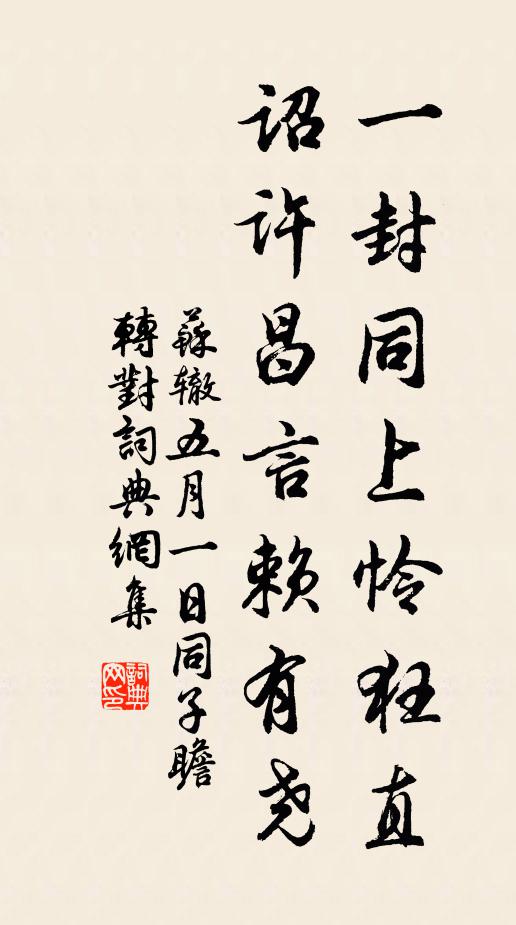 一封同上怜狂直
诏许昌言赖有尧
蘇辙五月一日同子瞻
轉對詞典網集
詞典网印